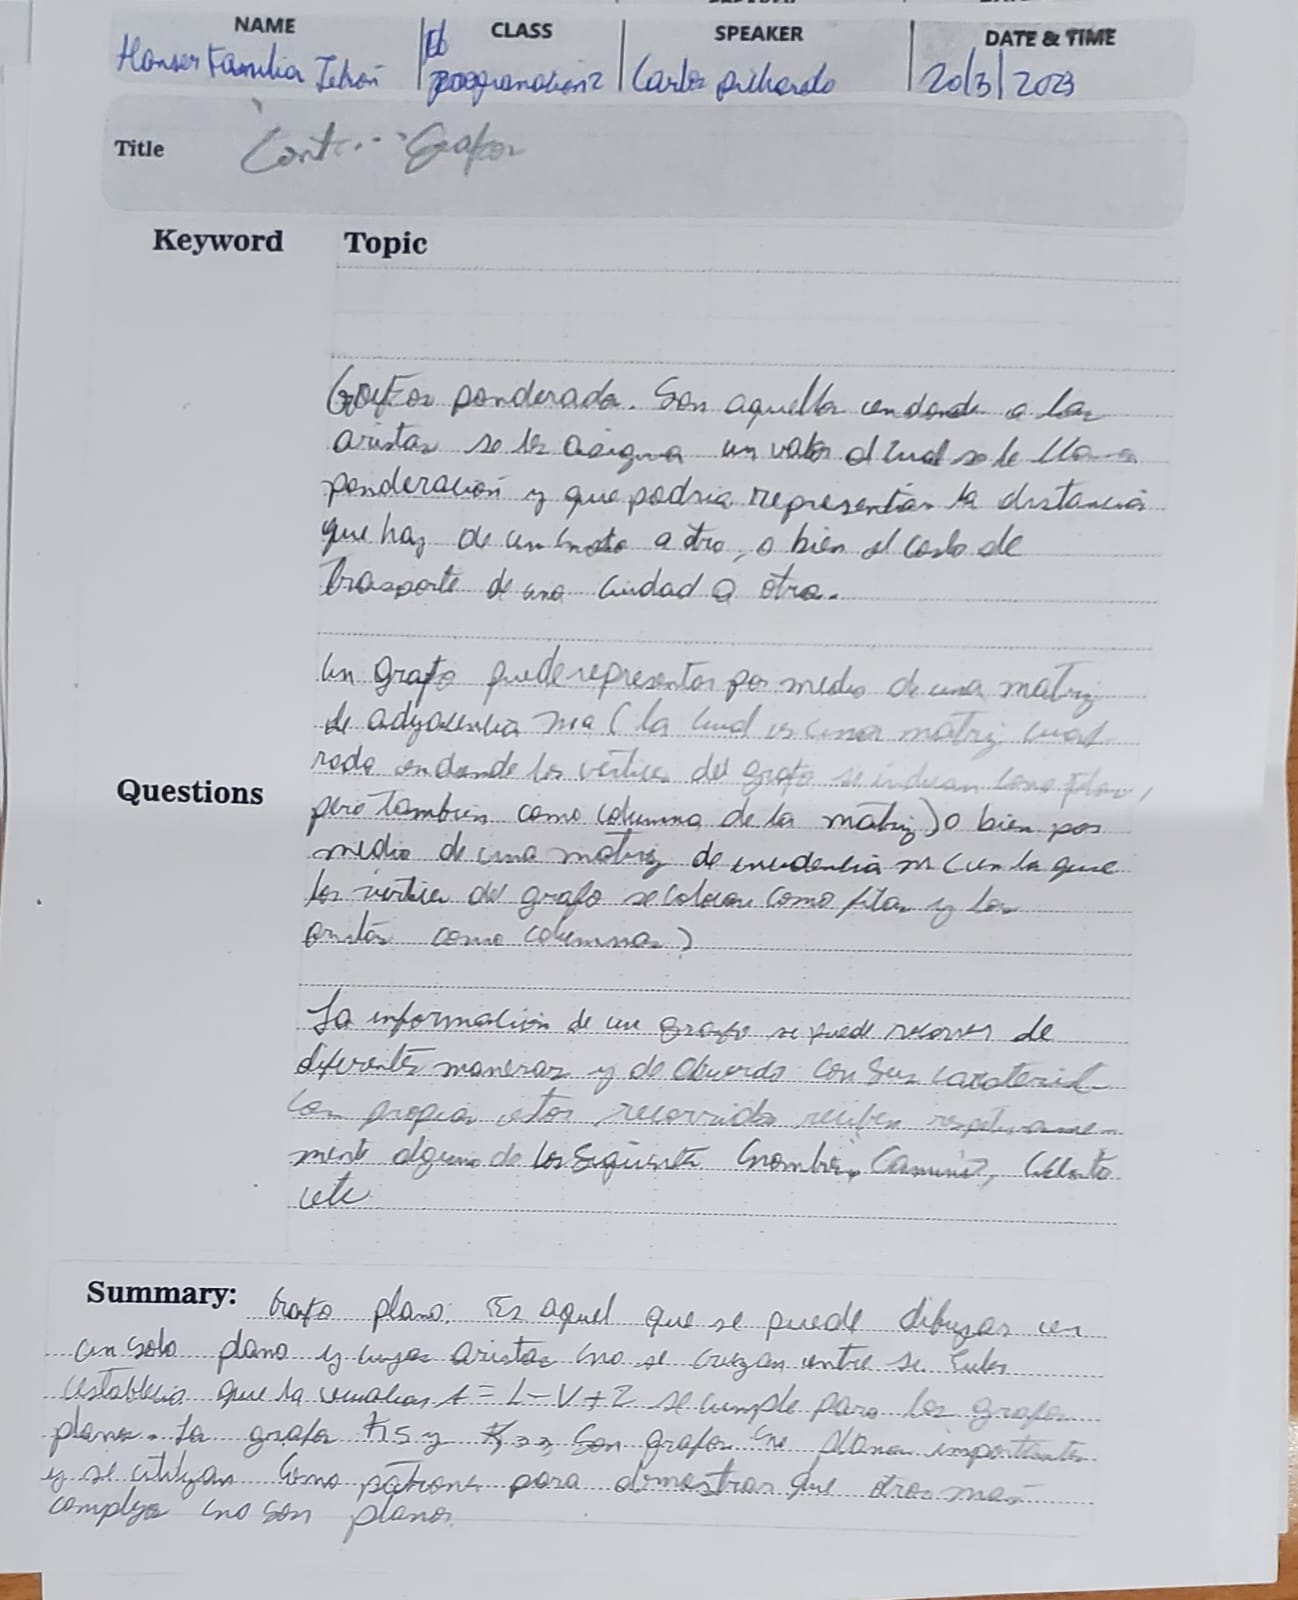 NAME CLASS SPEAKER DATE & TIME
Hanser Familia programacion2 Carlos pichardo 20/3/2023
Title Cont... Grafos
Keyword Topic
Grafos ponderado. Son aquellos en donde a las
aristas se les asigna un valor al cual se le llama
ponderación y que podria representar la distancia
que hay de un a otro, o bien el costo de
trasporte de una ciudad a otra.
un grafo puede representar por medio de una matriz
de adyacencia ma (la cual es una matriz cuad-
rada en donde los vertices del grafo se indican como filas,
Questions
pero tambien como columna de la matriz) o bien por
medio de una matriz de incidencia m (en la que
los vertice del grafo se colocan como filas y las
aristas como columnas)
La información de un grafo se puede recorrer de
diferentes maneras y de acuerdo con sus caracteristi-
cas propias estos recorridos reciben
mente alguno de los siguiente nombre, Camino, Circuito
etc
Summary: Grafo plano: Es aquel que se puede dibujar en
un solo plano y cuyas aristas no se cruzan entre si. Euler
establecio que la ecuacion A = L - V + 2 se cumple para los grafos
planos. Los grafos K5 y K33 son grafos no planos importantes
y se utilizan como patrones para demostrar que otros mas
complejos no son planos.